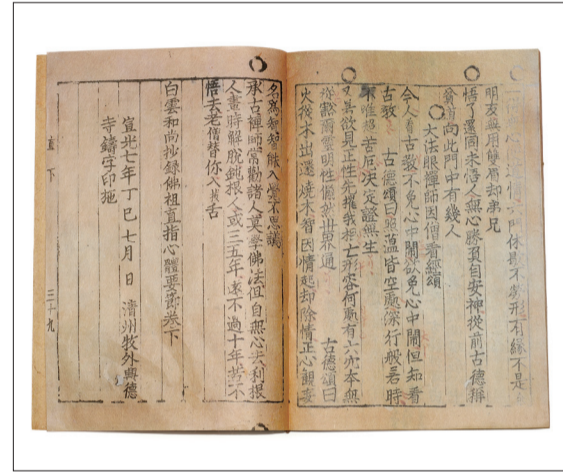 情六門休歇不勞形有緣不是
明友無用雙眉却弟兄
悟了還同未悟人無心勝負自安神從前古德稱
貧道向此門中有幾人
大法眼禪師因僧看經頌
今人看古教不免心中鬧欲免心中鬧但知看
古教 古德頌曰照蘊皆空處深行般若時
唯超苦厄決定證無生
又某欲見正性先摧我相亡形容何處有六亦本無
爾靈明性儼然世界通 古德頌曰
火從木出還燒木智因情起却除情正心觀妄
名爲知智能入覺不思議
承古禪師常勸諸人莫學佛法但自無心去利根
人晝時解脫鈍根人或三五年遠不過十年若不
悟去老僧替你入拔舌
白雲和尙抄錄佛祖直指心體要節卷下
宣光七年丁巳七月 日 淸州牧外興德
寺鑄字印施
直下 三十九